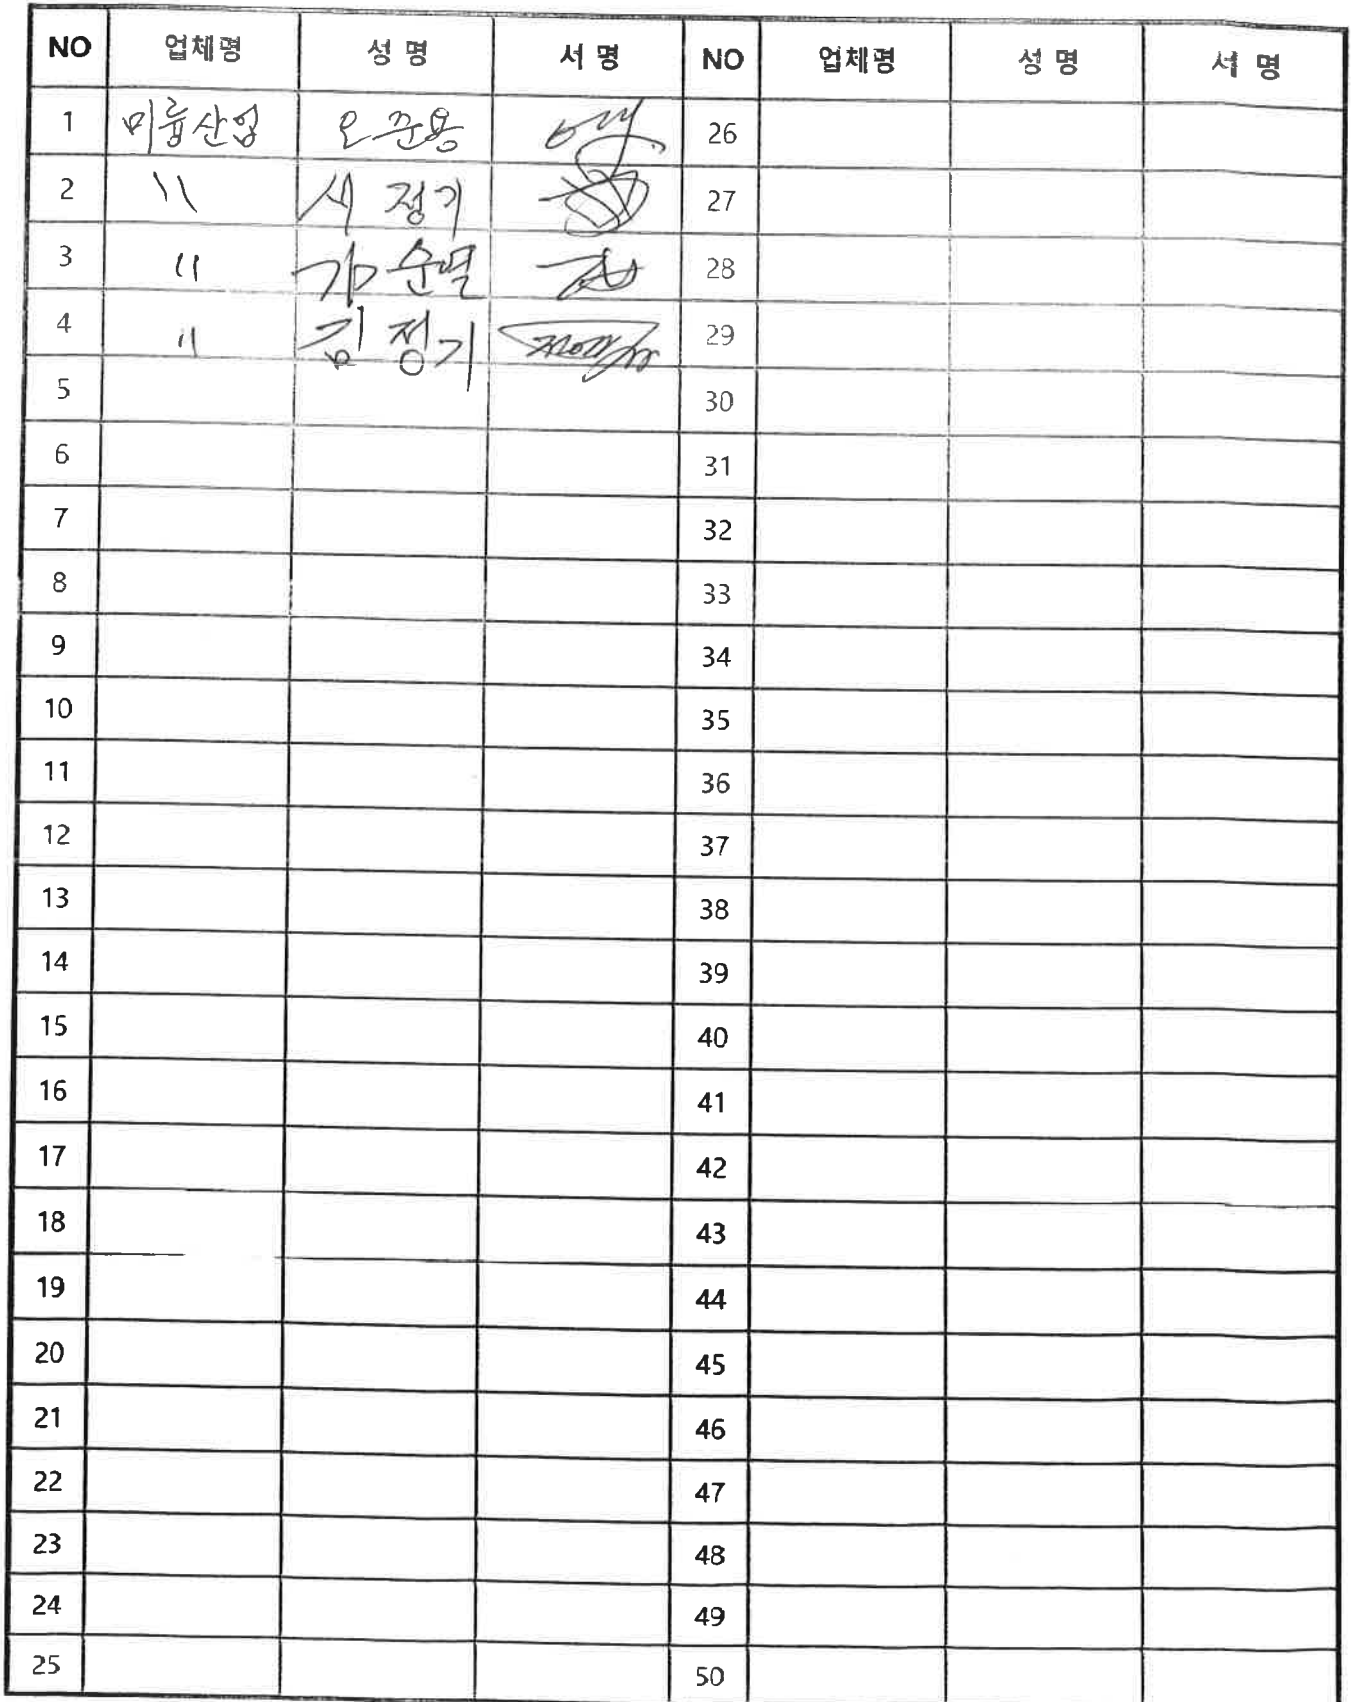 NO 업체명 성 명 서 명 NO 업체명 성 명 서 명
1 미륭산업 오준용 26
2 〃 서정기 27
3 〃 김순열 28
4 〃 김정기 29
5 30
6 31
7 32
8 33
9 34
10 35
11 36
12 37
13 38
14 39
15 40
16 41
17 42
18 43
19 44
20 45
21 46
22 47
23 48
24 49
25 50